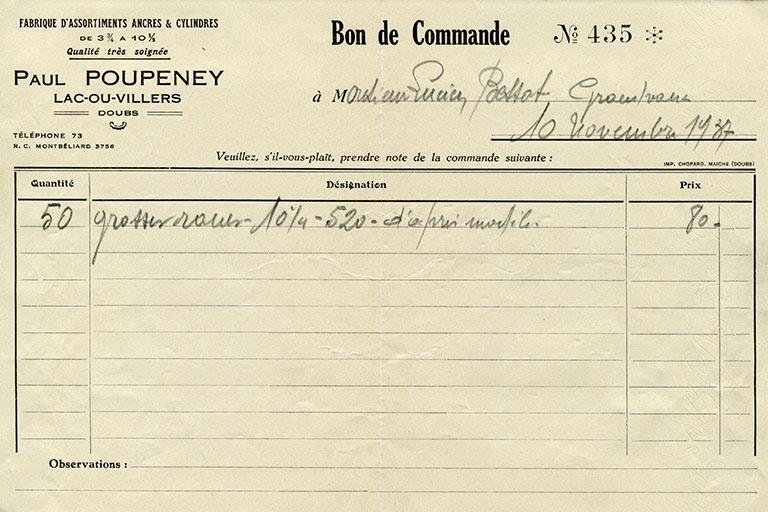 FABRIQUE D'ASSORTIMENTS ANCRES & CYLINDRES
DE 3¾ A 10½
Qualité très soignée
PAUL POUPENEY
LAC-OU-VILLERS
DOUBS
TÉLÉPHONE 73
R. C. MONTBÉLIARD 3756
Bon de Commande № 435
à Monsieur Lucien Bessot
10 Novembre 1937
Veuillez, s'il-vous-plaît, prendre note de la commande suivante :
IMP. CHOPARD, MAICHE (DOUBS)
Quantité Désignation Prix
50 grosses roues - 10½ - 520 - d'après modèle. 80.
Observations :